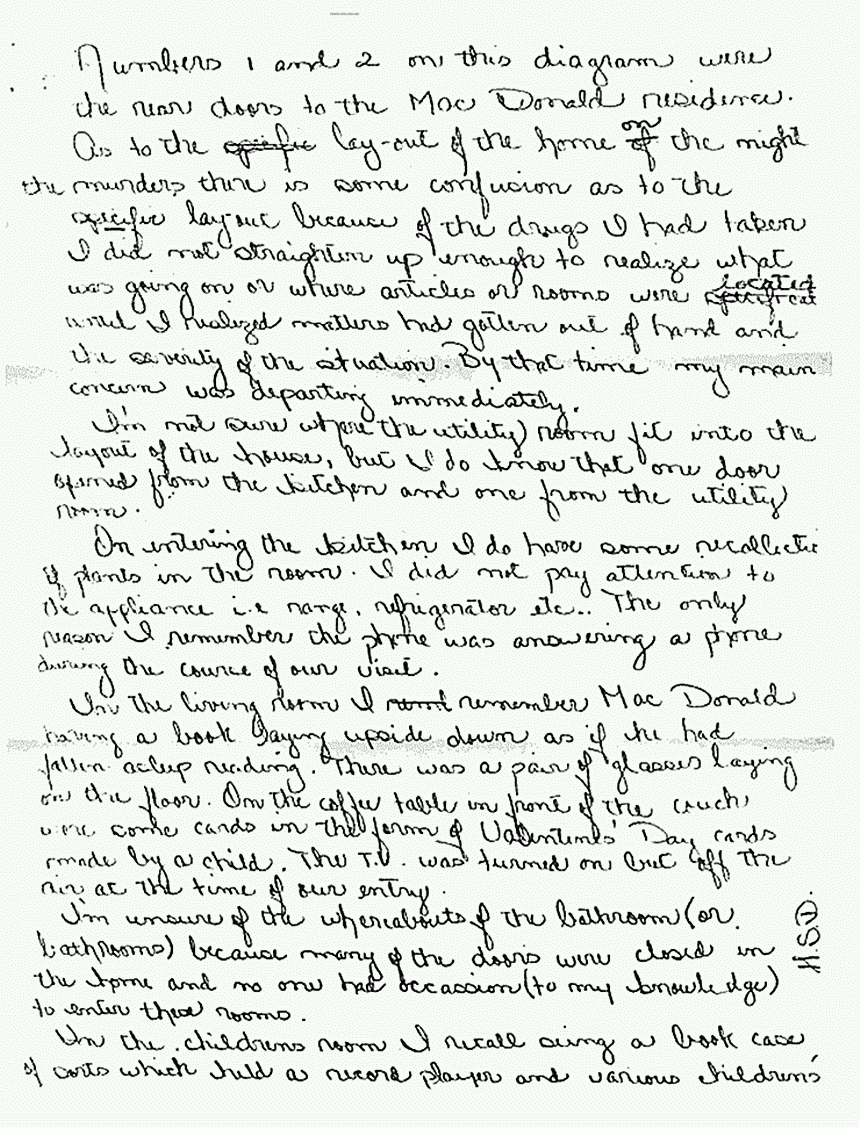 Numbers 1 and 2 on this diagram were
the rear doors to the Mac Donald residence.
As to the specific lay-out of the home of on the night
the murders there is some confusion as to the
specific lay-out because of the drugs I had taken
I did not straighten up enough to realize what
was going on or where articles or rooms were located
until I realized matters had gotten out of hand and
the severity of the situation. By that time my main
concern was departing immediately.
I'm not sure where the utility room fit into the
layout of the house, but I do know that one door
opened from the kitchen and one from the utility
room.
On entering the kitchen I do have some recollectio
of plants in the room. I did not pay attention to
the appliance i.e range, refrigerator etc.. The only
reason I remember the phone was answering a phone
during the course of our visit.
In the living room I remember Mac Donald
having a book laying upside down as if he had
fallen asleep reading. There was a pair of glasses laying
on the floor. On the coffee table in front of the couch
were some cards in the form of Valentines' Day cards
made by a child. The T.V. was turned on but off the
air at the time of our entry.
I'm unsure of the whereabouts of the bathroom (or
bathrooms) because many of the doors were closed in
the home and no one had occassion (to my knowledge)
to enter these rooms.
In the childrens room I recall seing a book case
of sorts which held a record player and various childrens'
H.S.D.